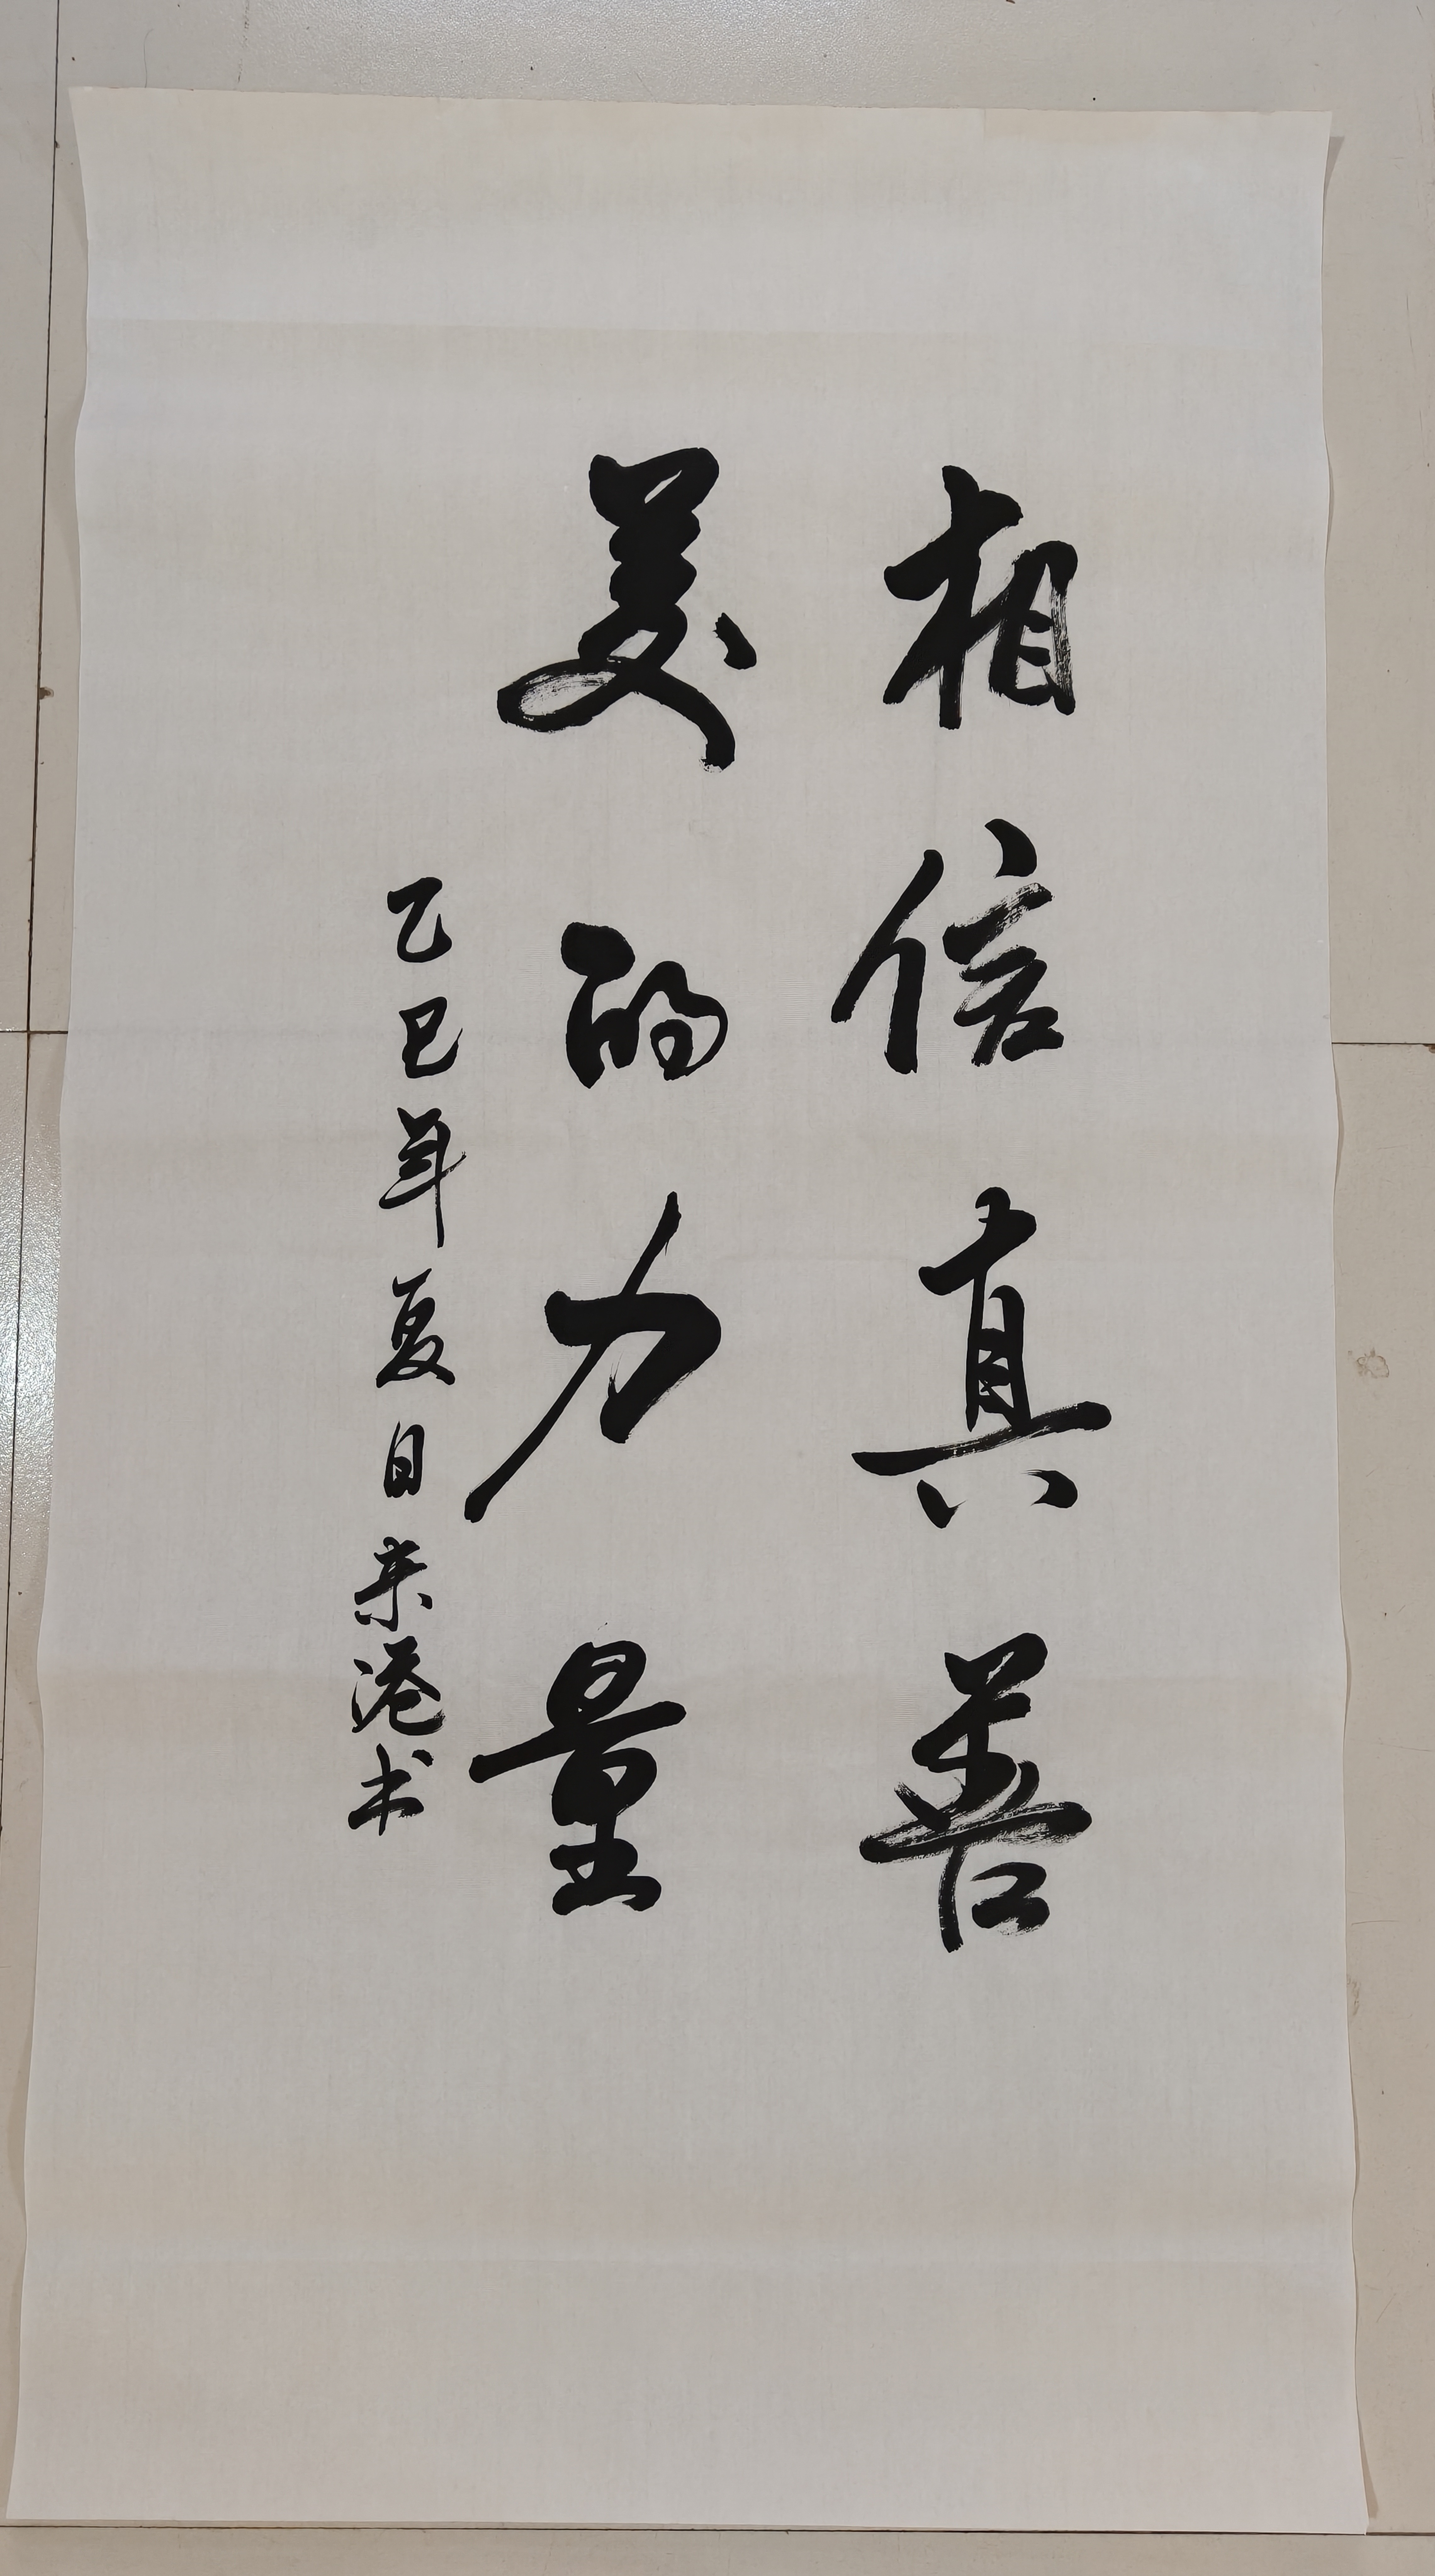 相信真善
美的力量
乙巳年夏日来港书